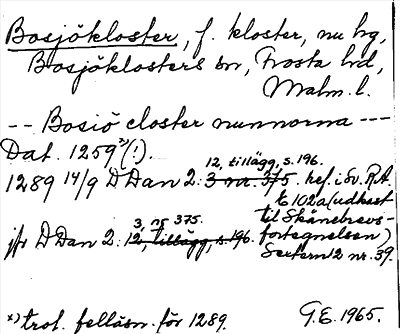 Bosjökloster, f. kloster, nu hg,
Bosjöklosters sn, Frosta hd,
Malm. l.
-- Bosiö closter nunnorna ---
Dat. 1259 x)(!).
12, tillägg, s. 196.
1289 14/9 DDan 2: 3 nr. 375. ref. i Sv. RA
t 102a (udkast
til Skånebrevs-
3, nr 375.
jfr DDan 2: 12, tillägg, s. 196. fortegnelsen)
Sextern 12 nr. 39.
x) trol. felläsn. för 1289. G.E. 1965.